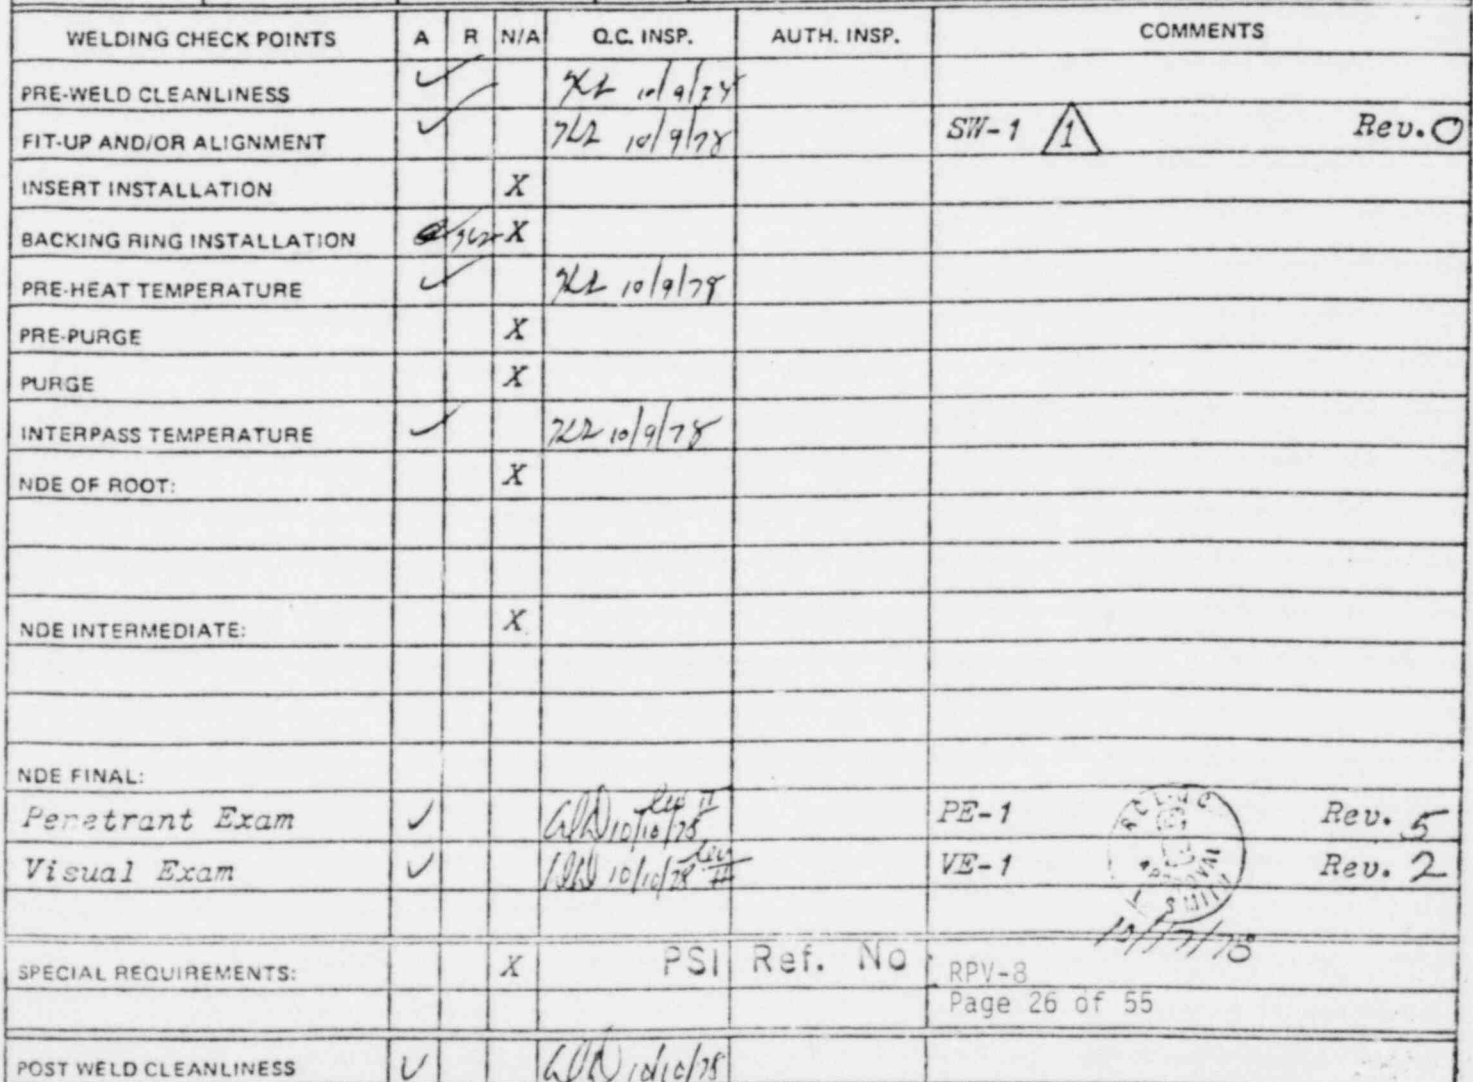 WELDING CHECK POINTS A R N/A Q.C. INSP. AUTH. INSP. COMMENTS
PRE-WELD CLEANLINESS ✓ 10/9/78
FIT-UP AND/OR ALIGNMENT ✓ 10/9/78 SW-1 1 Rev. 0
INSERT INSTALLATION X
BACKING RING INSTALLATION X
PRE-HEAT TEMPERATURE ✓ 10/9/78
PRE-PURGE X
PURGE X
INTERPASS TEMPERATURE ✓ 10/9/78
NDE OF ROOT: X
NDE INTERMEDIATE: X
NDE FINAL:
Penetrant Exam ✓ 10/10/78 Lev II PE-1 Rev. 5
Visual Exam ✓ 10/10/78 Lev II VE-1 Rev. 2
10/17/78
SPECIAL REQUIREMENTS: X PSI Ref. No. RPV-8
Page 26 of 55
POST WELD CLEANLINESS ✓ 10/10/78